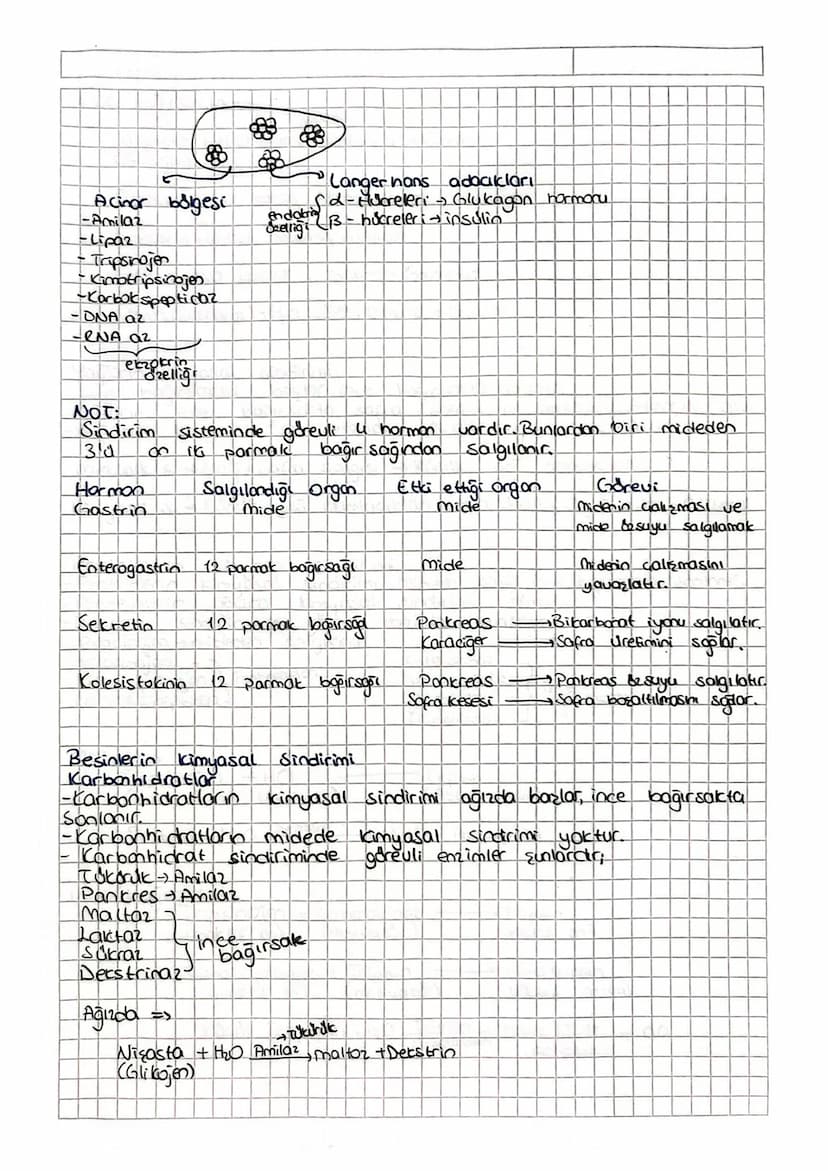 Langerhans adacıkları
Acinar bölgesi
α-Hücreleri → Glukagon hormonu
endokrin özelliği
β-hücreleri → insülin
-Amilaz
-Lipaz
-Tripsinojen
-Kimotripsinojen
-Karboksipeptidaz
-DNA az
-RNA az
ekzokrin özelliği
NOT:
Sindirim sisteminde görevli 4 hormon vardır. Bunlardan biri mideden
3'ü on iki parmak bağırsağından salgılanır.
Hormon Salgılandığı organ Etki ettiği organ Görevi
Gastrin mide mide midenin çalışması ve
mide özsuyu salgılamak
Enterogastrin 12 parmak bağırsağı mide midenin çalışmasını
yavaşlatır.
Sekretin 12 parmak bağırsağı Pankreas → Bikarbonat iyonu salgılatır.
Karaciğer → Safra üretimini sağlar.
Kolesistokinin 12 parmak bağırsağı Pankreas → Pankreas özsuyu salgılatır.
Safra kesesi → Safra boşaltılmasını sağlar.
Besinlerin kimyasal Sindirimi
Karbonhidratlar
-Karbonhidratların kimyasal sindirimi ağızda başlar, ince bağırsakta
sonlanır.
-Karbonhidratların midede kimyasal sindirimi yoktur.
- Karbonhidrat sindiriminde görevli enzimler şunlardır;
Tükürük → Amilaz
Pankres → Amilaz
Maltaz
Laktaz
Sükraz
Dekstrinaz
ince bağırsak
Ağızda =>
→ Tükürük
Nişasta + H₂O Amilaz → maltoz + Dekstrin
(Glikojen)